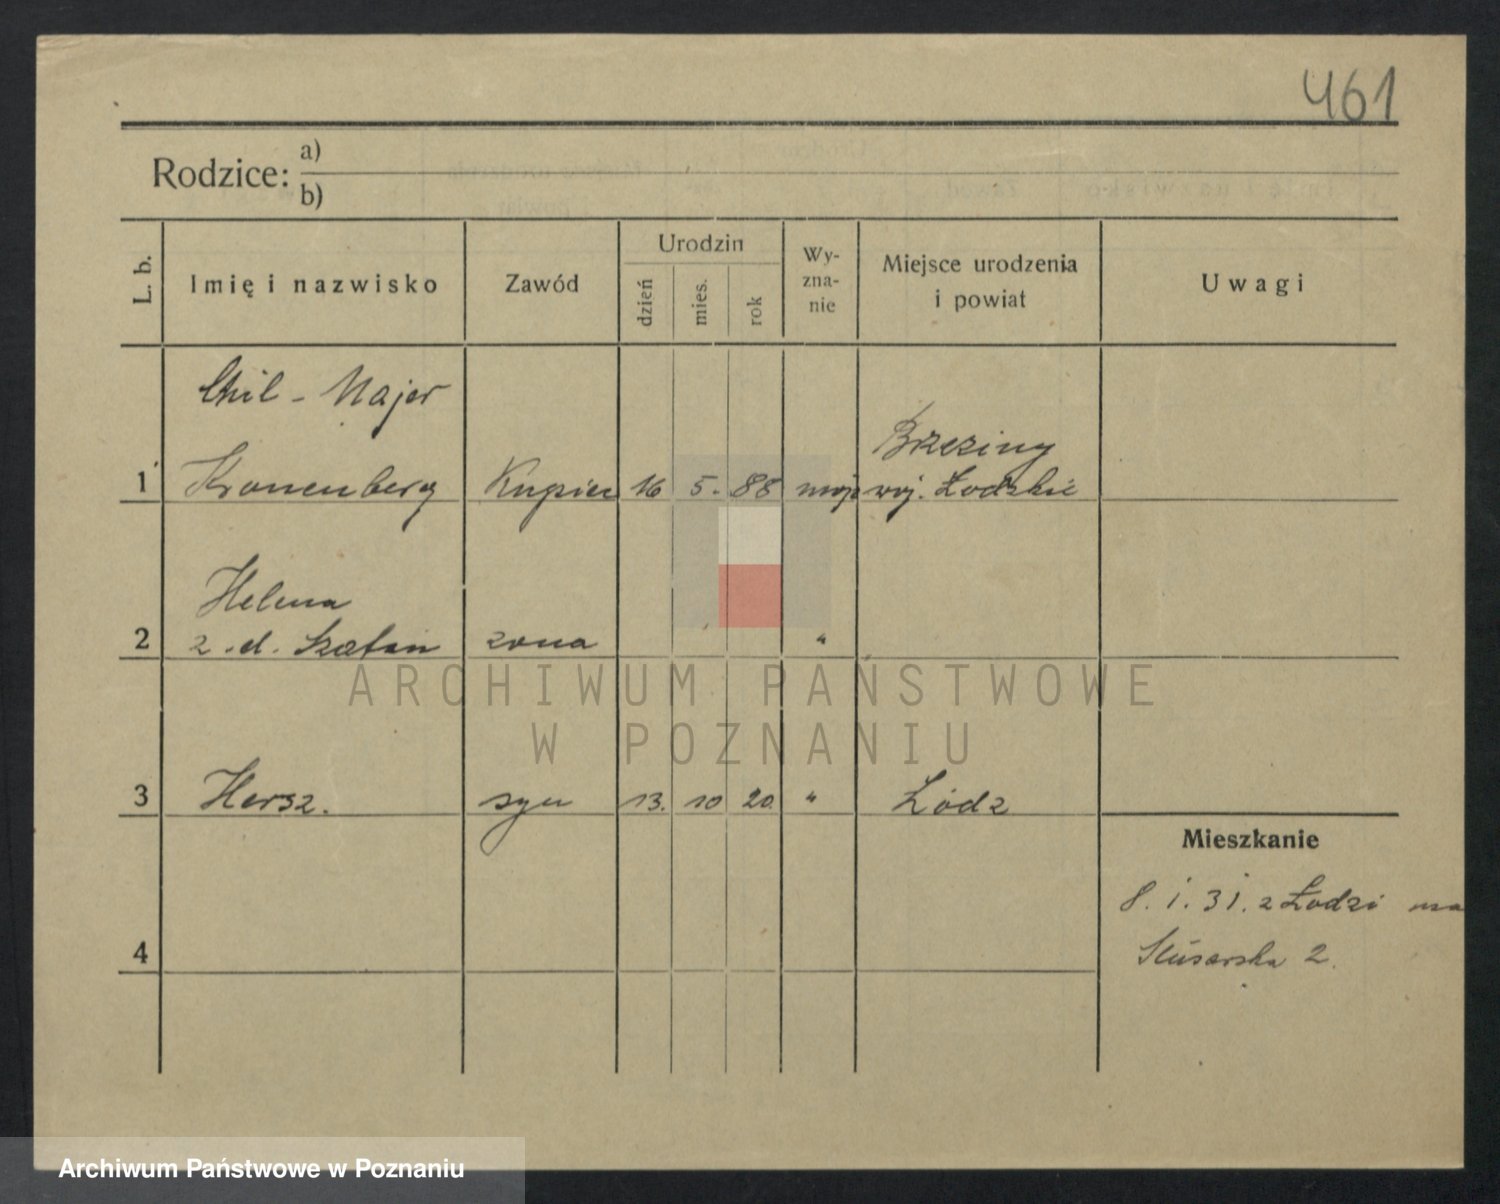 461
Rodzice: a)
b)
L. b.
Imię i nazwisko
Zawód
Urodzin
dzień
mies.
rok
Wy-
zna-
nie
Miejsce urodzenia
i powiat
Uwagi
Chil - Majer
1 Kronenberg Kupiec 16 5. 88 mojż
Brzeziny
woj. Łodzkie
Helena
2 z. d. żona "
3 Hersz. syn 13. 10 20. " Łódz
4
Mieszkanie
8. 1. 31. z Łodzi na
Ślusarska 2.
ARCHIWUM PAŃSTWOWE
W POZNANIU
Archiwum Państwowe w Poznaniu